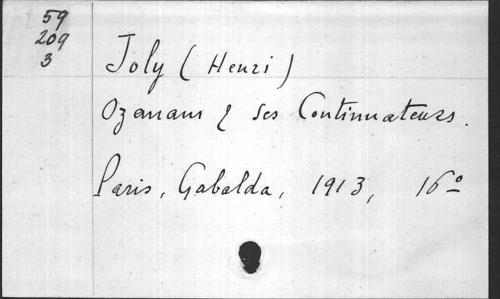 59
209
3
Joly (Henri)
Ozanam & ses Continuateurs.
Paris, Gabalda, 1913, 16º